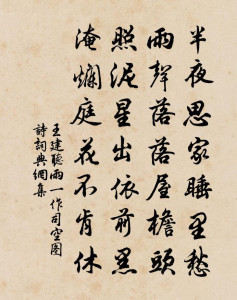 半夜思家睡里愁
雨聲落落屋檐頭
照泥星出依前黑
淹爛庭花不肯休
王建聽雨一作司空图
詩詞典網集